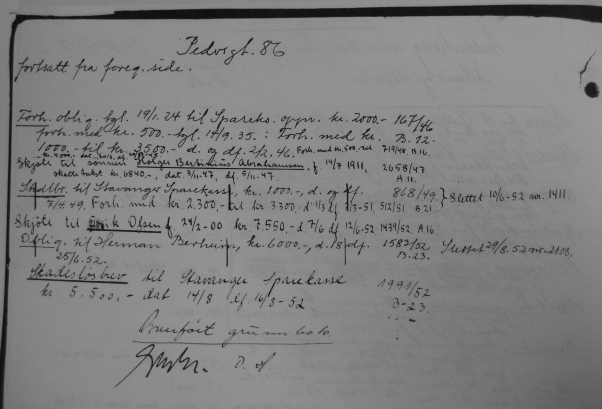 Pedersgt. 86
fortsatt fra foreg. side.
Forh. oblig. tgl. 19/1.24 til Spareks. oppr. kr. 2000.- 167/46
forh. med kr. 500.- tgl. 14/9.35. : Forh. med kr. B.12.
1000.- til kr. 3500.- d. og df. 2/2.46. Forh. med kr. 500,- 719/48. B.16.
Skjöte til sønnen Holger Bertinius Abrahamsen, f. 14/7 1911, 2658/47.
skattetakst kr. 6840,-, dat. 3/11.47, df. 5/11.47. A.11.
Skadbr. til Stavanger Sparekasse, kr. 1000,-, d. og df. 868/49. } Slettet 10/6-52 nr. 1411.
7/4.49. Forh. med kr. 2.300,- til kr. 3300,- d 1/3 df 7/3-51, 512/51 B.21.
Skjöte til Erik Olsen f. 24/2-00 kr. 7.550,- d 7/6 df 12/6-52 1439/52 A.16.
Oblig. til Herman Berheim, kr. 6000,-, d. 18 df. 1582/52 Slettet 29/8.52 nr. 2108.
25/6.52. B.23.
Skadesløsbrev til Stavanger Sparekasse 1991/52
kr 5.500,- dat 14/8 df. 16/8-52 B-23.
Overført grunnbok
d. s.